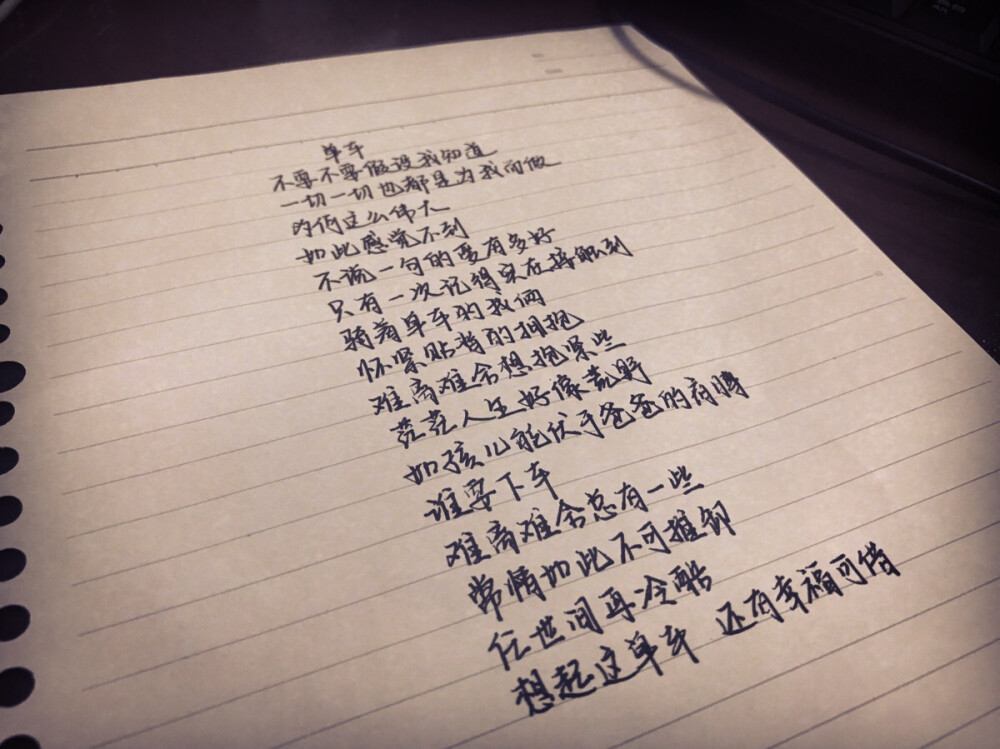 单车
不要不要假设我知道
一切一切也都是为我而做
为何这么伟大
如此感觉不到
不说一句的爱有多好
只有一次记得实在接触到
骑着单车的我俩
怀紧贴背的拥抱
难离难舍想抱紧些
茫茫人生好像荒野
如孩儿能伏于爸爸的肩膊
谁要下车
难离难舍总有一些
常情如此不可推卸
任世间再冷酷
想起这单车 还有幸福可借